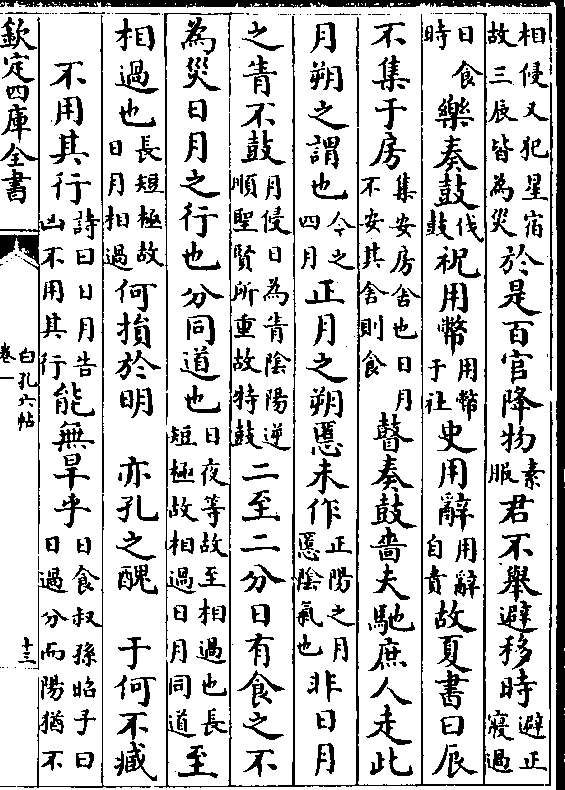 相侵又犯星宿故三辰皆為災於是百官降物素服君不舉避移時避正寢過
日食時樂奏鼓伐鼓祝用幣用幣于社史用辭用辭自責故夏書曰辰
不集于房集安房舍也日月不安其舍則食瞽奏鼓嗇夫馳庶人走此
月朔之謂也令之四月正月之朔慝未作正陽之月慝陰氣也非日月
之眚不鼓月侵日為眚陰陽逆順聖賢所重故特鼓二至二分日有食之不
為災日月之行也分同道也日夜等故至相過也長短極故相過日月同道至
相過也長短極故日月相過何損於明　亦孔之醜　于何不臧
不用其行詩曰日月告凶不用其行能無旱乎日食叔孫昭子曰日過分而陽猶不
欽定四庫全書
白孔六帖
卷一
十三